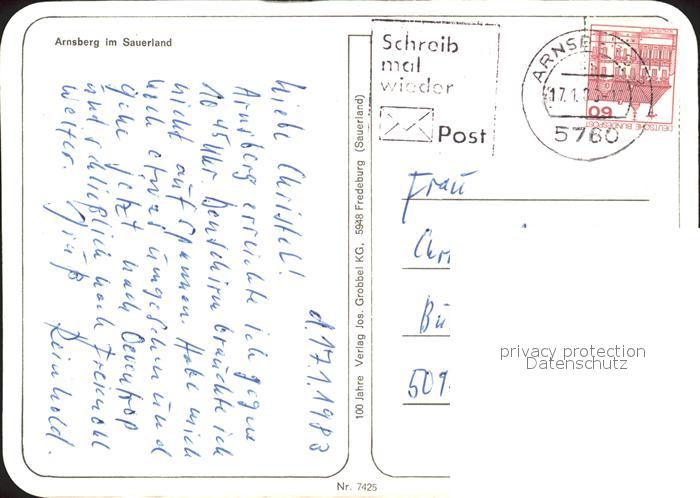 Arnsberg im Sauerland
d. 17.1.1983
Liebe Christel!
Arnsberg erreichte ich gegen
10.45 Uhr. Denschirm brauchte ich
nicht aufspannen. Habe mich
noch etwas umgeschn und
gehe jetzt nach Oeventrop
und schließlich nach Freienohl
weiter. Gruß
Reinhold.
100 Jahre Verlag Jos. Grobbel KG, 5948 Fredeburg (Sauerland)
Nr. 7425
Schreib
mal
wieder
Post
ARNSBE
17.1.8
5760
60
DEUTSCHE BUNDESPOST
Frau
Chr
Bü
509
privacy protection
Datenschutz